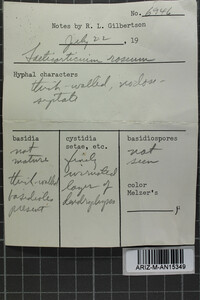 No. 6946
Notes by R. L. Gilbertson
July 22, 19
Laeticorticium roseum
Hyphal characters
thick-walled, nodose-
septate
basidia
not
mature
thick-walled
basidioles
present
cystidia
setae, etc.
finely
branched
layer of
dendrohyphae
basidiospores
not
seen
color
Melzer's
μ
ARIZ-M-AN15349